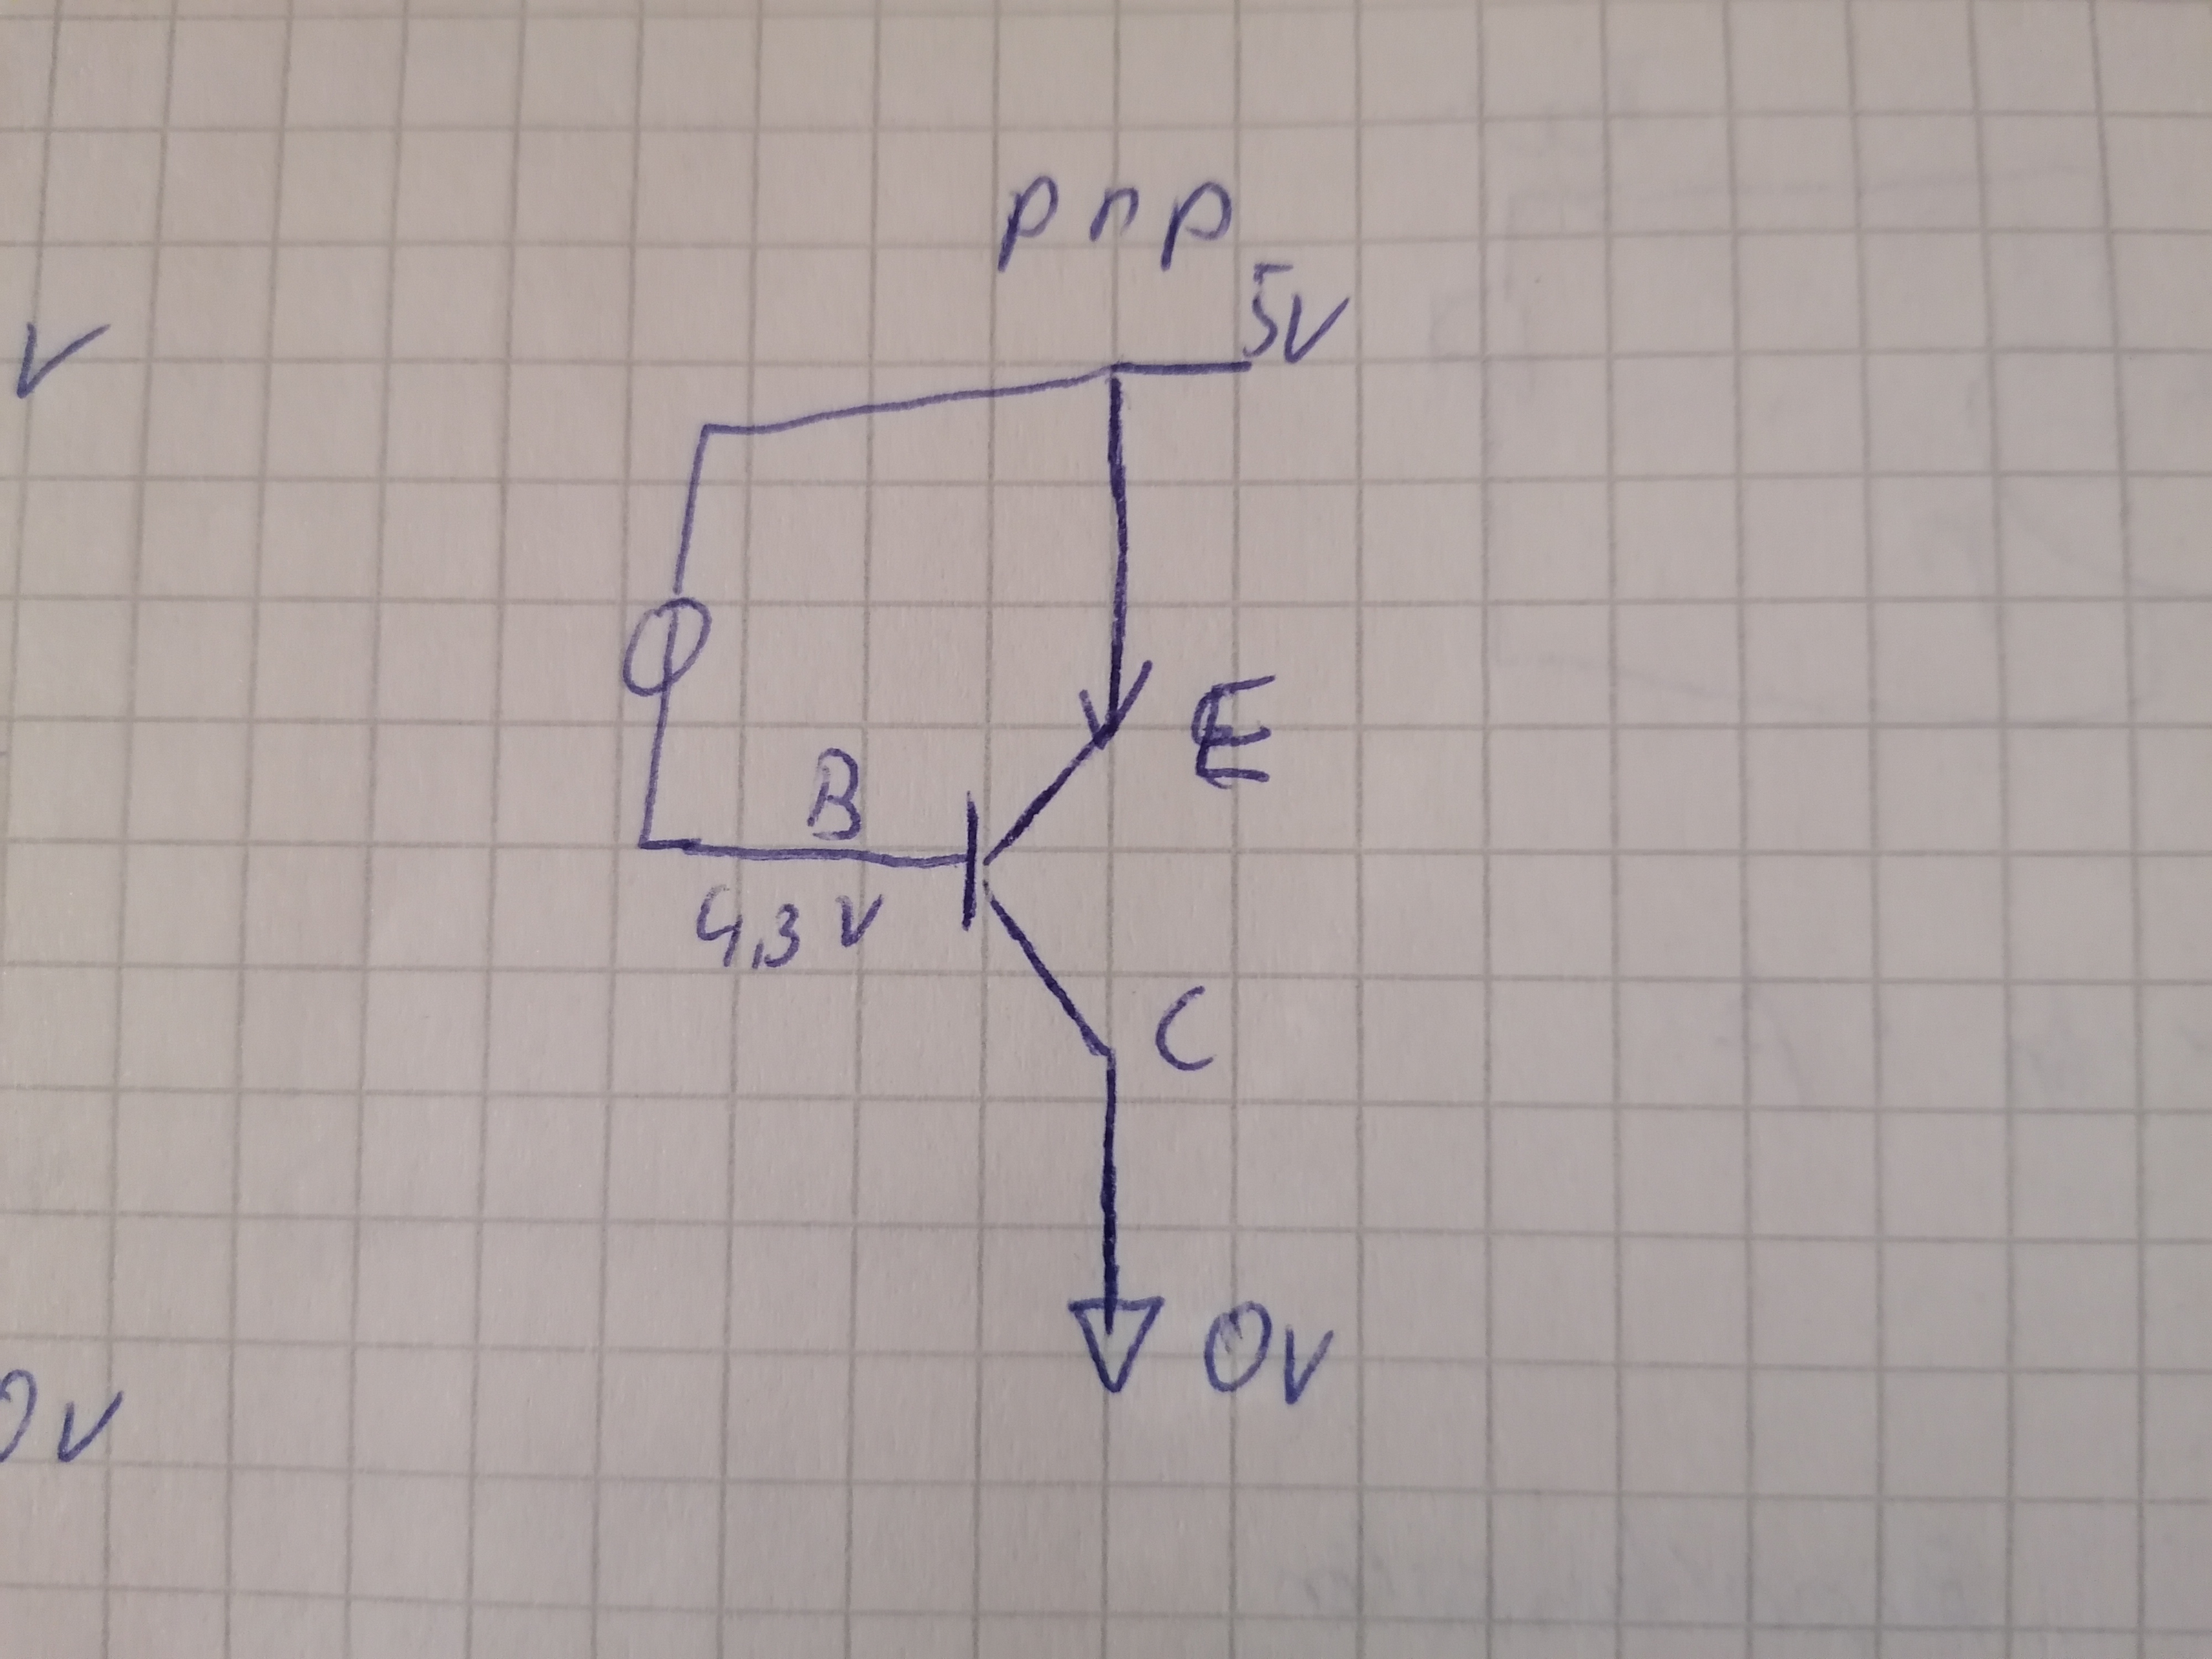 pnp
5V
V
E
B
4,3 V
C
0V
0V